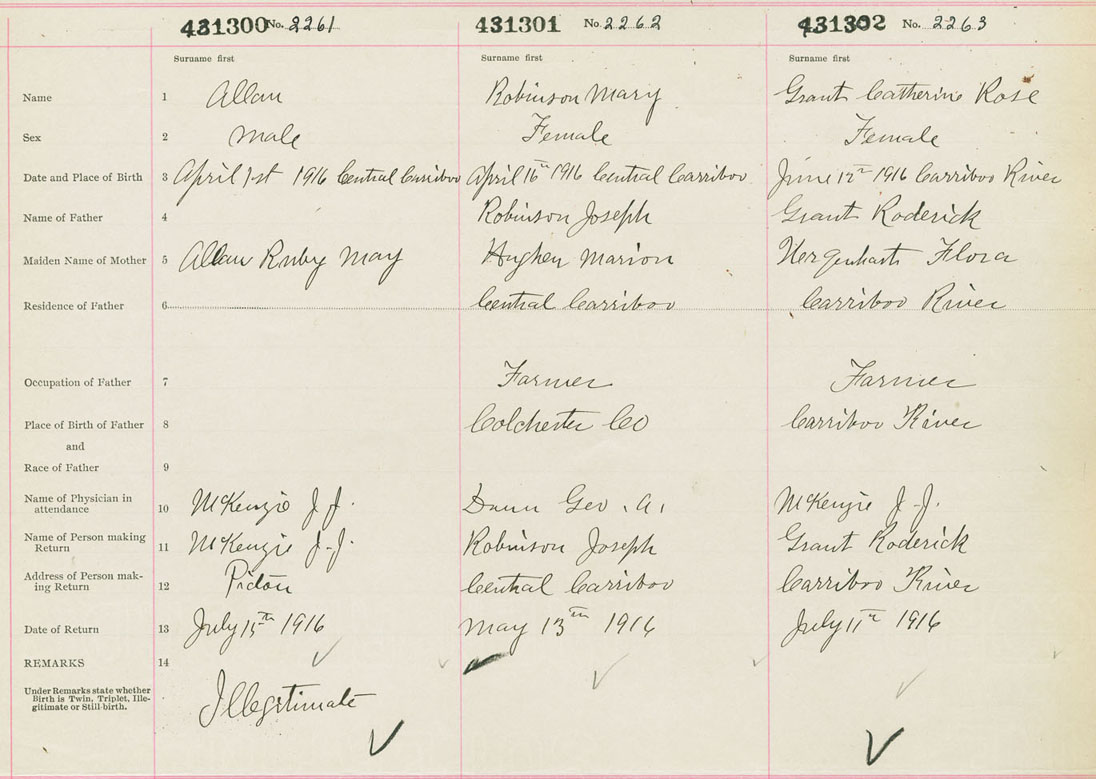 431300 No. 2261 431301 No. 2262 431302 No. 2263
Surname first Surname first Surname first
Name 1 Allan Robinson Mary Grant Catherine Rose
Sex 2 Male Female Female
Date and Place of Birth 3 April 1st 1916 Central Carriboo April 16th 1916 Central Carriboo June 12th 1916 Carriboo River
Name of Father 4 Robinson Joseph Grant Roderick
Maiden Name of Mother 5 Allan Ruby May Hughen Marion Flora
Residence of Father 6 Central Carriboo Carriboo River
Occupation of Father 7 Farmer Farmer
Place of Birth of Father 8 Colchester Co Carriboo River
and
Race of Father 9
Name of Physician in
attendance 10 McKenzie J.J. Dunn Geo. A. McKenzie J.J.
Name of Person making
Return 11 McKenzie J.J. Robinson Joseph Grant Roderick
Address of Person mak-
ing Return 12 Pictou Central Carriboo Carriboo River
Date of Return 13 July 15th 1916 May 13th 1916 July 11th 1916
REMARKS 14
Under Remarks state whether
Birth is Twin, Triplet, Ille-
gitimate or Still-birth.
Illegitimate